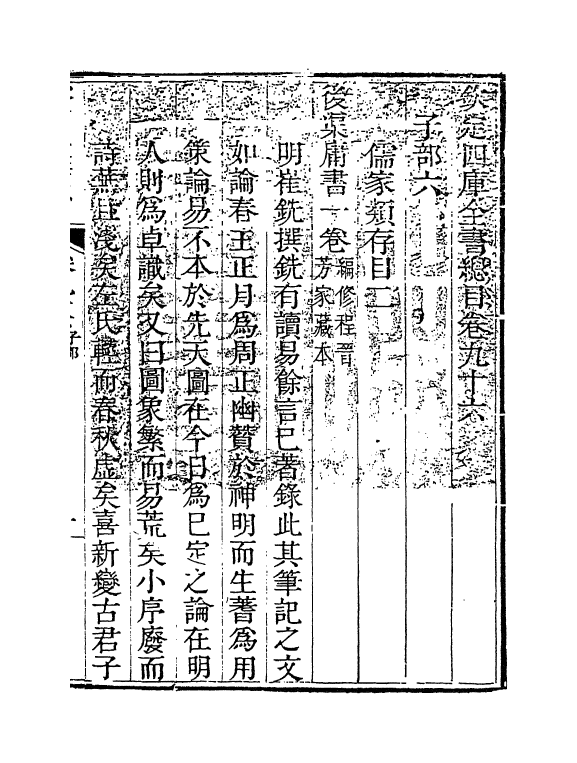 欽定四庫全書總目卷九十六
子部六
儒家類存目二
後渠庸書一卷編修程晉芳家藏本
明崔銑撰銑有讀易餘言已著錄此其筆記之文
如論春王正月為周正幽贊於神明而生蓍為用
策論易不本於先天圖在今日為已定之論在明
人則為卓識矣又曰圖象繁而易荒矣小序廢而
詩蕪且淺矣左氏輕而春秋虛矣喜新變古君子